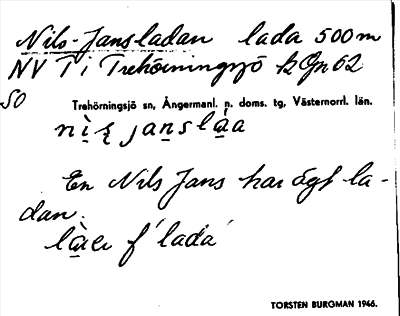 Nils-Jansladan lada 500 m
NV T i Trehörningsjö k Ögn 62
SO
Trehörningsjö sn, Ångermanl. n. doms. tg, Västernorrl. län.
jaṇslạ̀a
En Nils Jans har ägt la-
dan.
f 'lada'
TORSTEN BURGMAN 1946.